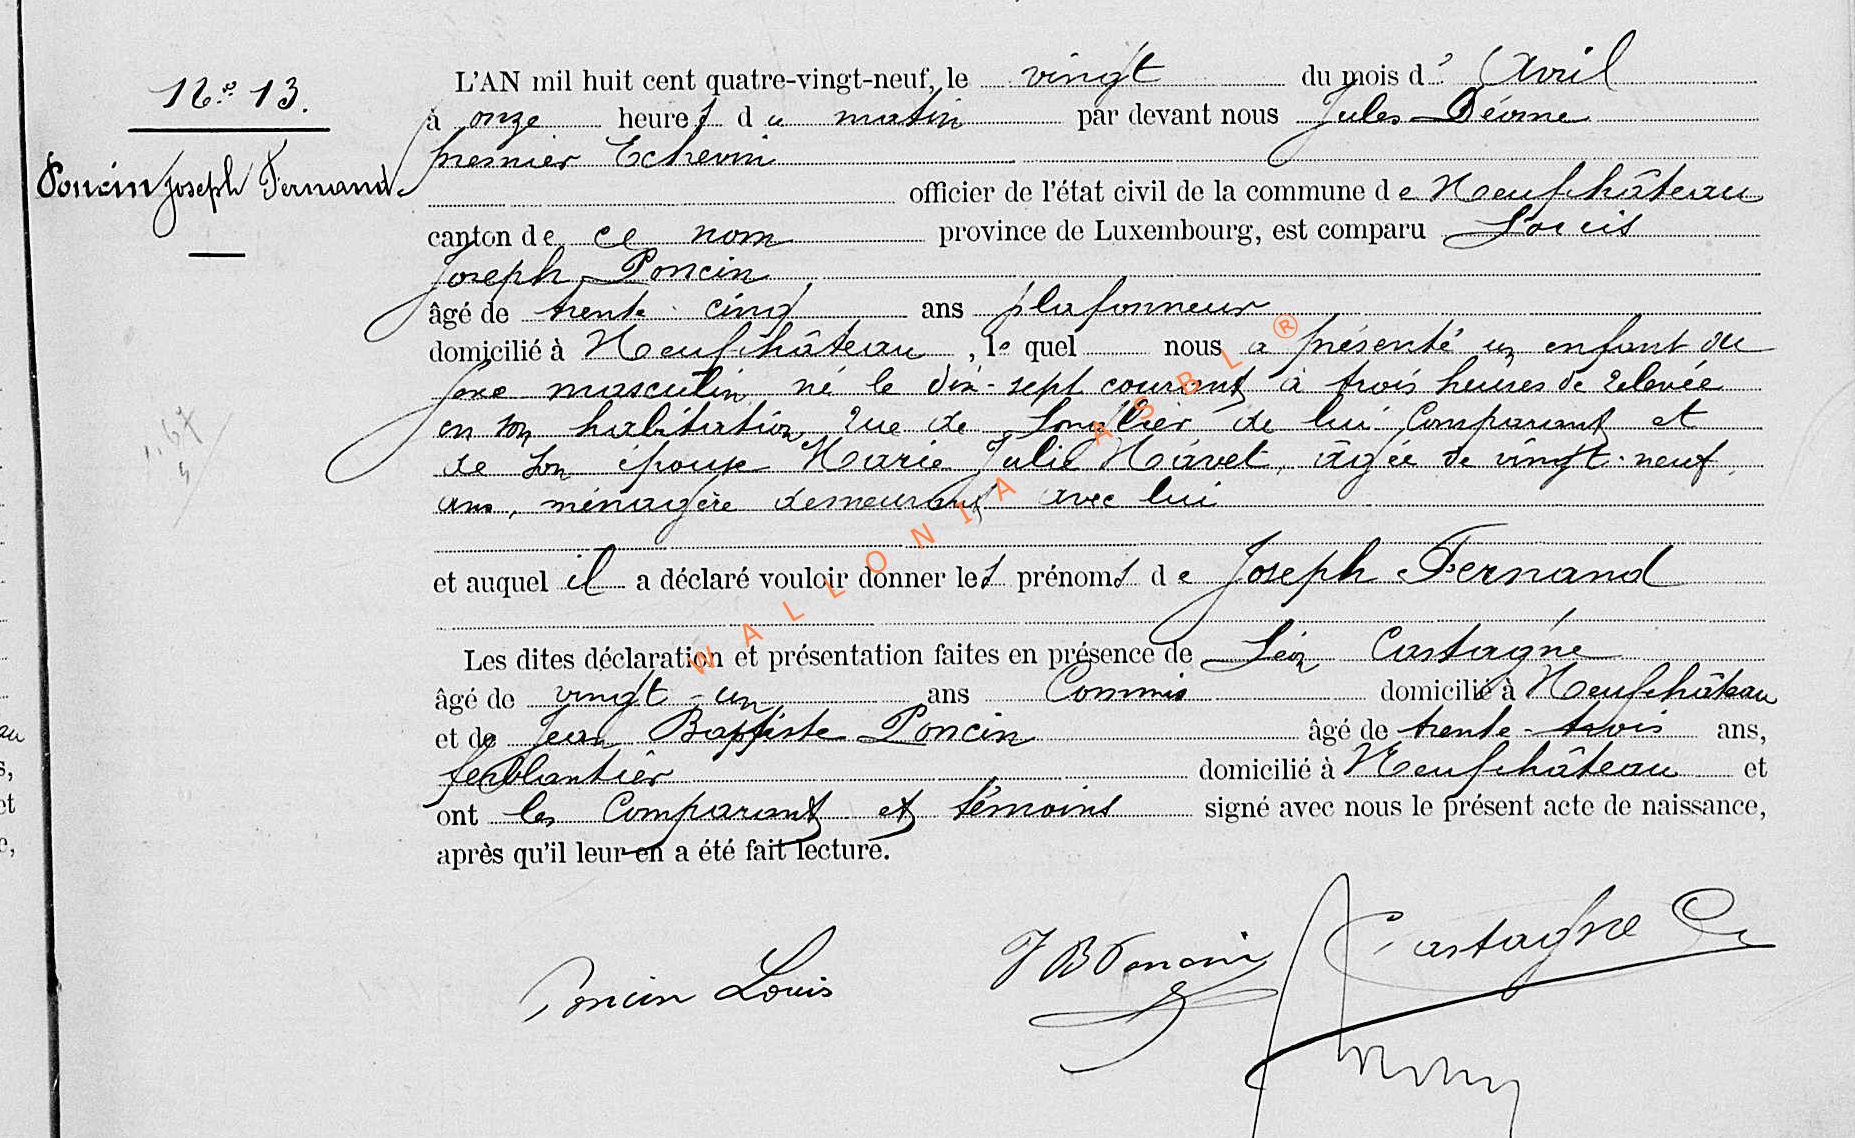 N° 13.
Poncin Joseph Fernand.
L'AN mil huit cent quatre-vingt-neuf, le vingt du mois d' Avril
à onze heures du matin par devant nous Jules
premier Echevin
officier de l'état civil de la commune de Neufchâteau
canton de ce nom province de Luxembourg, est comparu Louis
Joseph Poncin
âgé de trente-cinq ans plafonneur
domicilié à Neufchâteau, lequel nous a présenté un enfant du
sexe masculin né le dix-sept courant à trois heures de relevée
en son habitation rue de Longlier de lui Comparant et
de son épouse Marie Julie Havet, âgée de vingt-neuf
ans, ménagère demeurant avec lui
et auquel il a déclaré vouloir donner les prénoms de Joseph Fernand
Les dites déclaration et présentation faites en présence de Léon Castagne
âgé de vingt-un ans Commis domicilié à Neufchâteau
et de Jean Baptiste Poncin âgé de trente-trois ans,
ferblantier domicilié à Neufchâteau et
ont les Comparant et témoins signé avec nous le présent acte de naissance,
après qu'il leur en a été fait lecture.
Poncin Louis
J B Poncin
Castagne
WALLONIA ASBL ®